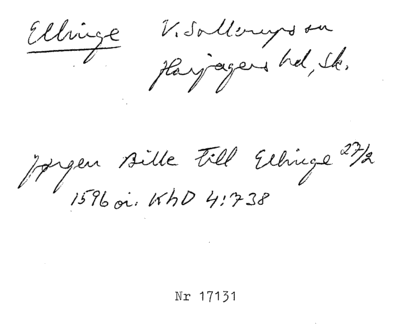 Ellinge V. Sallerups sn
Harjagers hd, Sk.
Jørgen Bille till Ellinge 27/2
1596 oi. KhD 4:738
Nr 17131